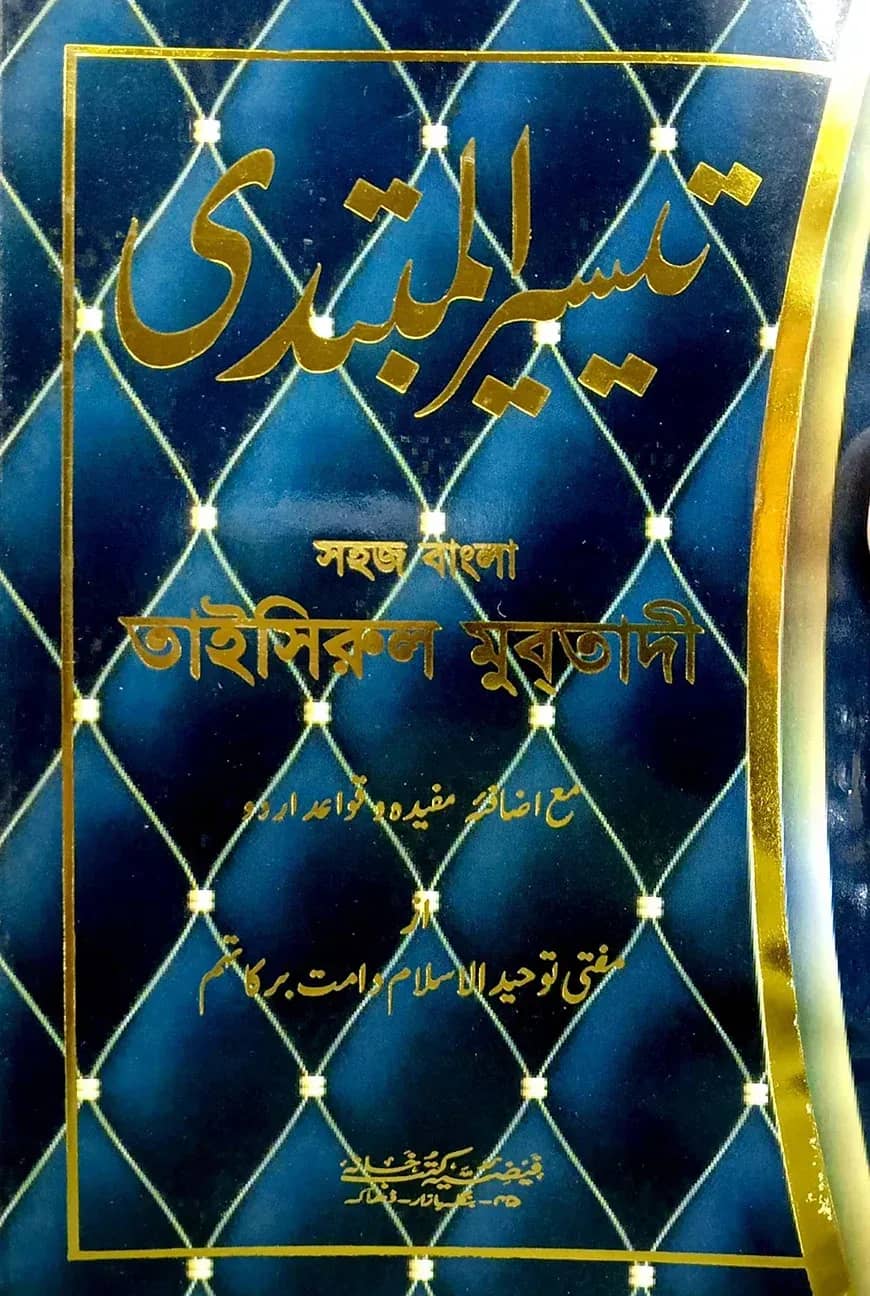 تیسیر المبتدی
সহজ বাংলা
তাইসিরুল মুব্‌তাদী
مع اضافۂ مفیدہ و قواعد اردو
از
مفتی توحید الاسلام دامت برکاتہم
فیضیہ کتب خانہ
بنگلہ بازار - ڈھاکہ